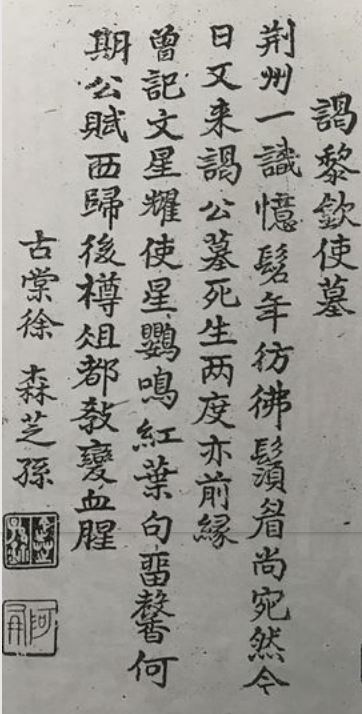 謁黎欽使墓
荆州一識憶髫年彷彿鬚眉尚宛然今
日又来謁公墓死生两度亦前緣
曾記文星耀使星鸚鳴紅葉句畱馨何
期公賦西歸後樽俎都教變血腥
古棠徐 森芝孫